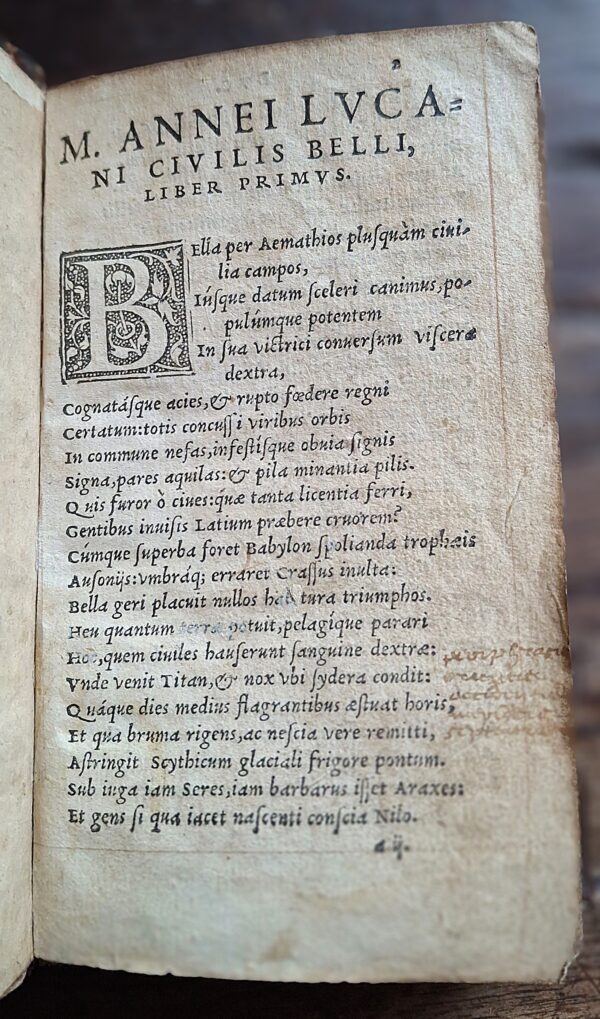 2
M. ANNEI LVCA=
NI CIVILIS BELLI,
LIBER PRIMVS.
BElla per Aemathios pluſquàm ciui-
lia campos,
Iúſque datum ſceleri canimus, po-
pulúmque potentem
In ſua victrici conuerſum viſcera
dextra,
Cognatáſque acies, & rupto fœdere regni
Certatum: totis concuſſi viribus orbis
In commune nefas, infeſtiſque obuia ſignis
Signa, pares aquilas: & pila minantia pilis.
Quis furor ò ciues: quæ tanta licentia ferri,
Gentibus inuiſis Latium præbere cruorem?
Cúmque ſuperba foret Babylon ſpolianda trophæis
Auſonijs: vmbráq; erraret Craſſus inulta:
Bella geri placuit nullos habitura triumphos.
Heu quantum terræ potuit, pelagique parari
Hoc, quem ciuiles hauſerunt ſanguine dextræ:
Vnde venit Titan, & nox vbi ſydera condit:
Quáque dies medius flagrantibus æſtuat horis,
Et qua bruma rigens, ac neſcia vere remitti,
Aſtringit Scythicum glaciali frigore pontum.
Sub iuga iam Seres, iam barbarus iſſet Araxes:
Et gens ſi qua iacet naſcenti conſcia Nilo.
a ij.